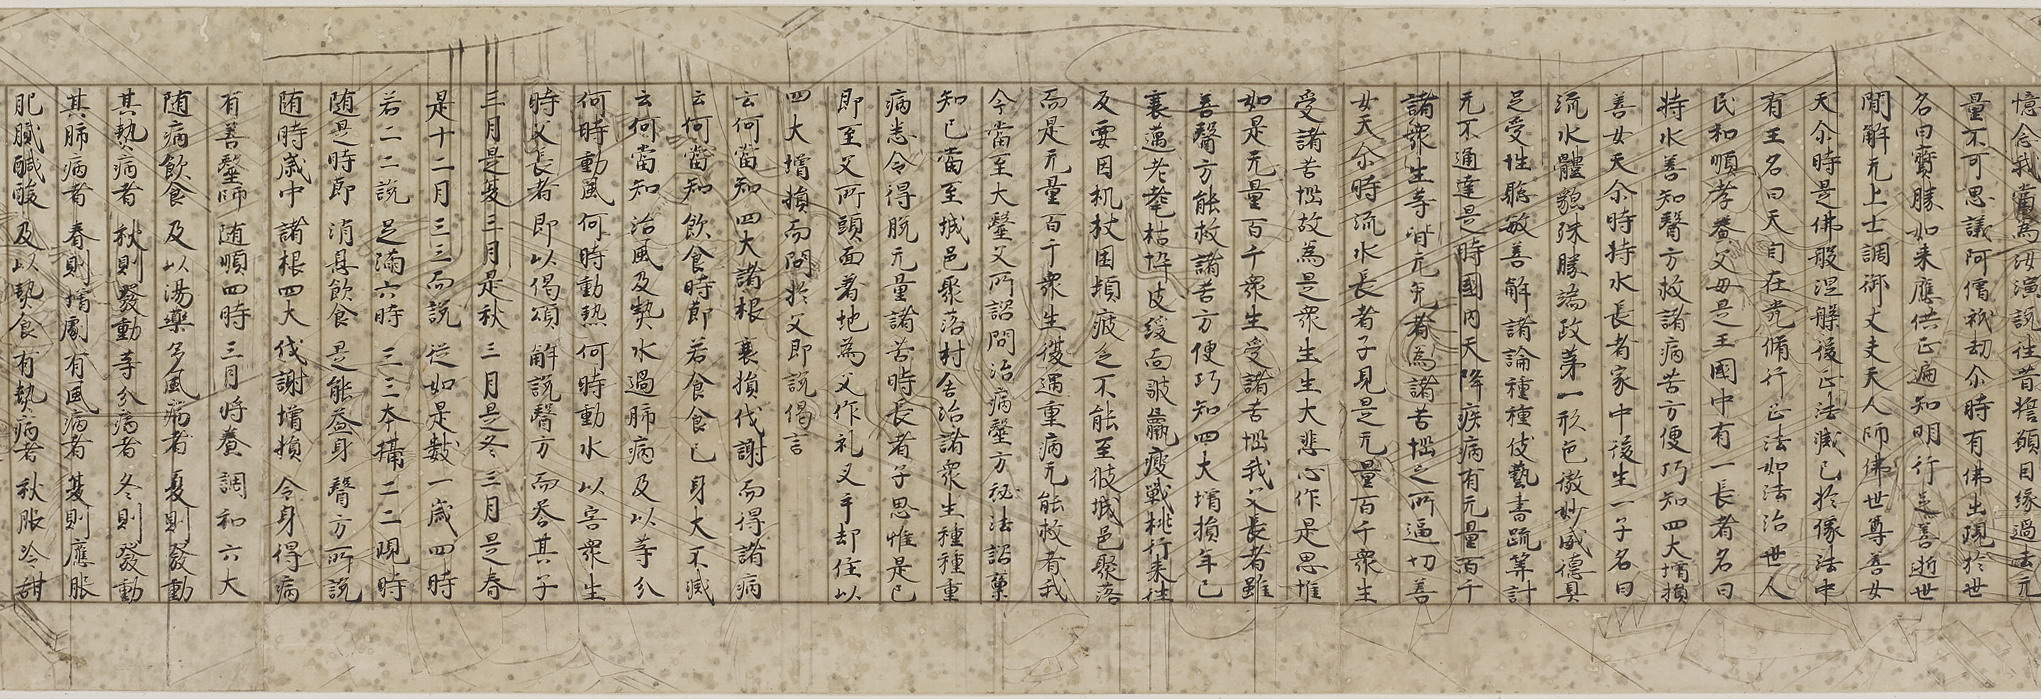 憶念我當為汝演說往昔擔願因緣過去无
量不可思議阿僧祇劫尒時有佛出現於世
名曰寶勝如来應供正遍知明行足善逝世
間解无上士調御丈夫天人師佛世尊善女
天尒時是佛般涅槃後正法滅已於像法中
有王名曰天自在光脩行正法如法治世人
民和順孝養父母是王國中有一長者名曰
持水善知醫方救諸病苦方便巧知四大增損
善女天尒時持水長者家中後生一子名曰
流水體貌殊勝端政苐一形色微妙威德具
足受性聡敏善解諸論種種伎藝書䟽筭計
无不通達是時國內天降疾病有无量百千
諸衆生等皆无免者為諸苦惱之所逼切善
女天尒時流水長者子見是无量百千衆生
受諸苦惱故為是衆生生大悲心作是思惟
如是无量百千衆生受諸苦惱我父長者雖
善醫方能救諸苦方便巧知四大增損年已
衰邁老耄枯悴皮緩面皺羸瘦戰掉行来往
反要因机杖困頓疲乏不能至彼城邑聚落
而是无量百千衆生復遇重病无能救者我
今當至大醫父所諮問治病醫方秘法諮稟
知已當至城邑聚落村舍治諸衆生種種重
病悉令得脫无量諸苦時長者子思惟是已
即至父所頭面着地為父作礼叉手却住以
四大增損而問於父即說偈言
云何當知四大諸根 衰損代謝而得諸病
云何當知飲食時節 若食食已身大不滅
云何當知治風及熱 水過肺病及以等分
何時動風何時動熱 何時動水以害衆生
時父長者即以偈頌 解說醫方而荅其子
三月是夏三月是秋 三月是冬三月是春
是十二月三三而說 從如是數一歲四時
若二二說足滿六時 三三本攝二二現時
随是時節消息飲食 是能益身醫方所說
随時歲中諸根四大 代謝增損令身得病
有善醫師随順四時 三月將養調和六大
随病飲食及以湯藥 多風病者夏則發動
其熱病者秋則發動 等分病者冬則發動
其肺病者春則增劇 有風病者夏則應服
肥膩醎酸及以熱食 有熱病者秋服冷甜